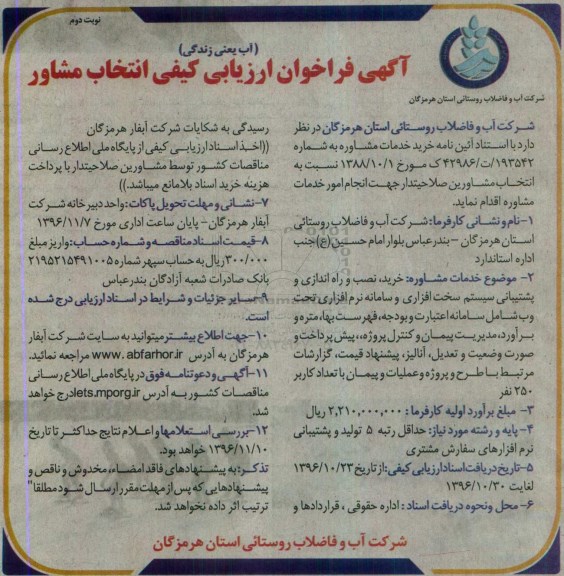 نوبت دوم
(آب یعنی زندگی)
آگهی فراخوان ارزیابی کیفی انتخاب مشاور
شرکت آب و فاضلاب روستائی استان هرمزگان
شرکت آب و فاضلاب روستائی استان هرمزگان در نظر
دارد با استناد آئین نامه خرید خدمات مشاوره به شماره
۱۹۳۵۴۲/ت/۴۲۹۸۶ ک مورخ ۱۳۸۸/۱۰/۱ نسبت به
انتخاب مشاورین صلاحیتدار جهت انجام امور خدمات
مشاوره اقدام نماید.
۱-نام و نشانی کارفرما: شرکت آب و فاضلاب روستائی
استان هرمزگان – بندرعباس بلوار امام حسین (ع) جنب
اداره استاندارد
۲- موضوع خدمات مشاوره: خرید، نصب و راه اندازی و
پشتیبانی سیستم سخت افزاری و سامانه نرم افزاری تحت
وب شامل سامانه اعتبارت و بودجه، فهرست بها، متره و
برآورد، مدیریت پیمان و کنترل پروژه، پیش پرداخت و
صورت وضعیت و تعدیل، آنالیز، پیشنهاد قیمت، گزارشات
مرتبط با طرح و پروژه و عملیات و پیمان با تعداد کاربر
۲۵۰ نفر
۳- مبلغ برآورد اولیه کارفرما : ۲,۲۱۰,۰۰۰,۰۰۰ ریال
۴- پایه و رشته مورد نیاز: حداقل رتبه ۵ تولید و پشتیبانی
نرم افزارهای سفارش مشتری
۵-تاریخ دریافت اسناد ارزیابی کیفی: از تاریخ ۱۳۹۶/۱۰/۲۳
لغایت ۱۳۹۶/۱۰/۳۰
۶- محل ونحوه دریافت اسناد : اداره حقوقی ، قراردادها و
رسیدگی به شکایات شرکت آبفار هرمزگان
((اخذ اسناد ارزیابی کیفی از پایگاه ملی اطلاع رسانی
مناقصات کشور توسط مشاورین صلاحیتدار با پرداخت
هزینه خرید اسناد بلامانع میباشد.))
۷-نشانی و مهلت تحویل پاکات: واحد دبیرخانه شرکت
آبفار هرمزگان – پایان ساعت اداری مورخ ۱۳۹۶/۱۱/۷
۸-قیمت اسناد مناقصه و شماره حساب: واریز مبلغ
۳۰۰/۰۰۰ ریال به حساب سپهر شماره ۲۱۹۵۲۱۵۴۹۱۰۰۵
بانک صادرات شعبه آزادگان بندرعباس
۹-سایر جزئیات و شرایط در اسناد ارزیابی درج شده
است.
۱۰-جهت اطلاع بیشتر میتوانید به سایت شرکت آبفار
هرمزگان به آدرس www.abfarhor.ir مراجعه نمائید.
۱۱-آگهی و دعوتنامه فوق در پایگاه ملی اطلاع رسانی
مناقصات کشور به آدرس iets.mporg.ir درج خواهد
شد.
۱۲-بررسی استعلامها و اعلام نتایج حداکثر تا تاریخ
۱۳۹۶/۱۱/۱۰ خواهد بود.
تذکر: به پیشنهادهای فاقد امضاء، مخدوش و ناقص و
پیشنهادهایی که پس از مهلت مقرر ارسال شود مطلقا"
ترتیب اثر داده نخواهد شد.
شرکت آب و فاضلاب روستائی استان هرمزگان